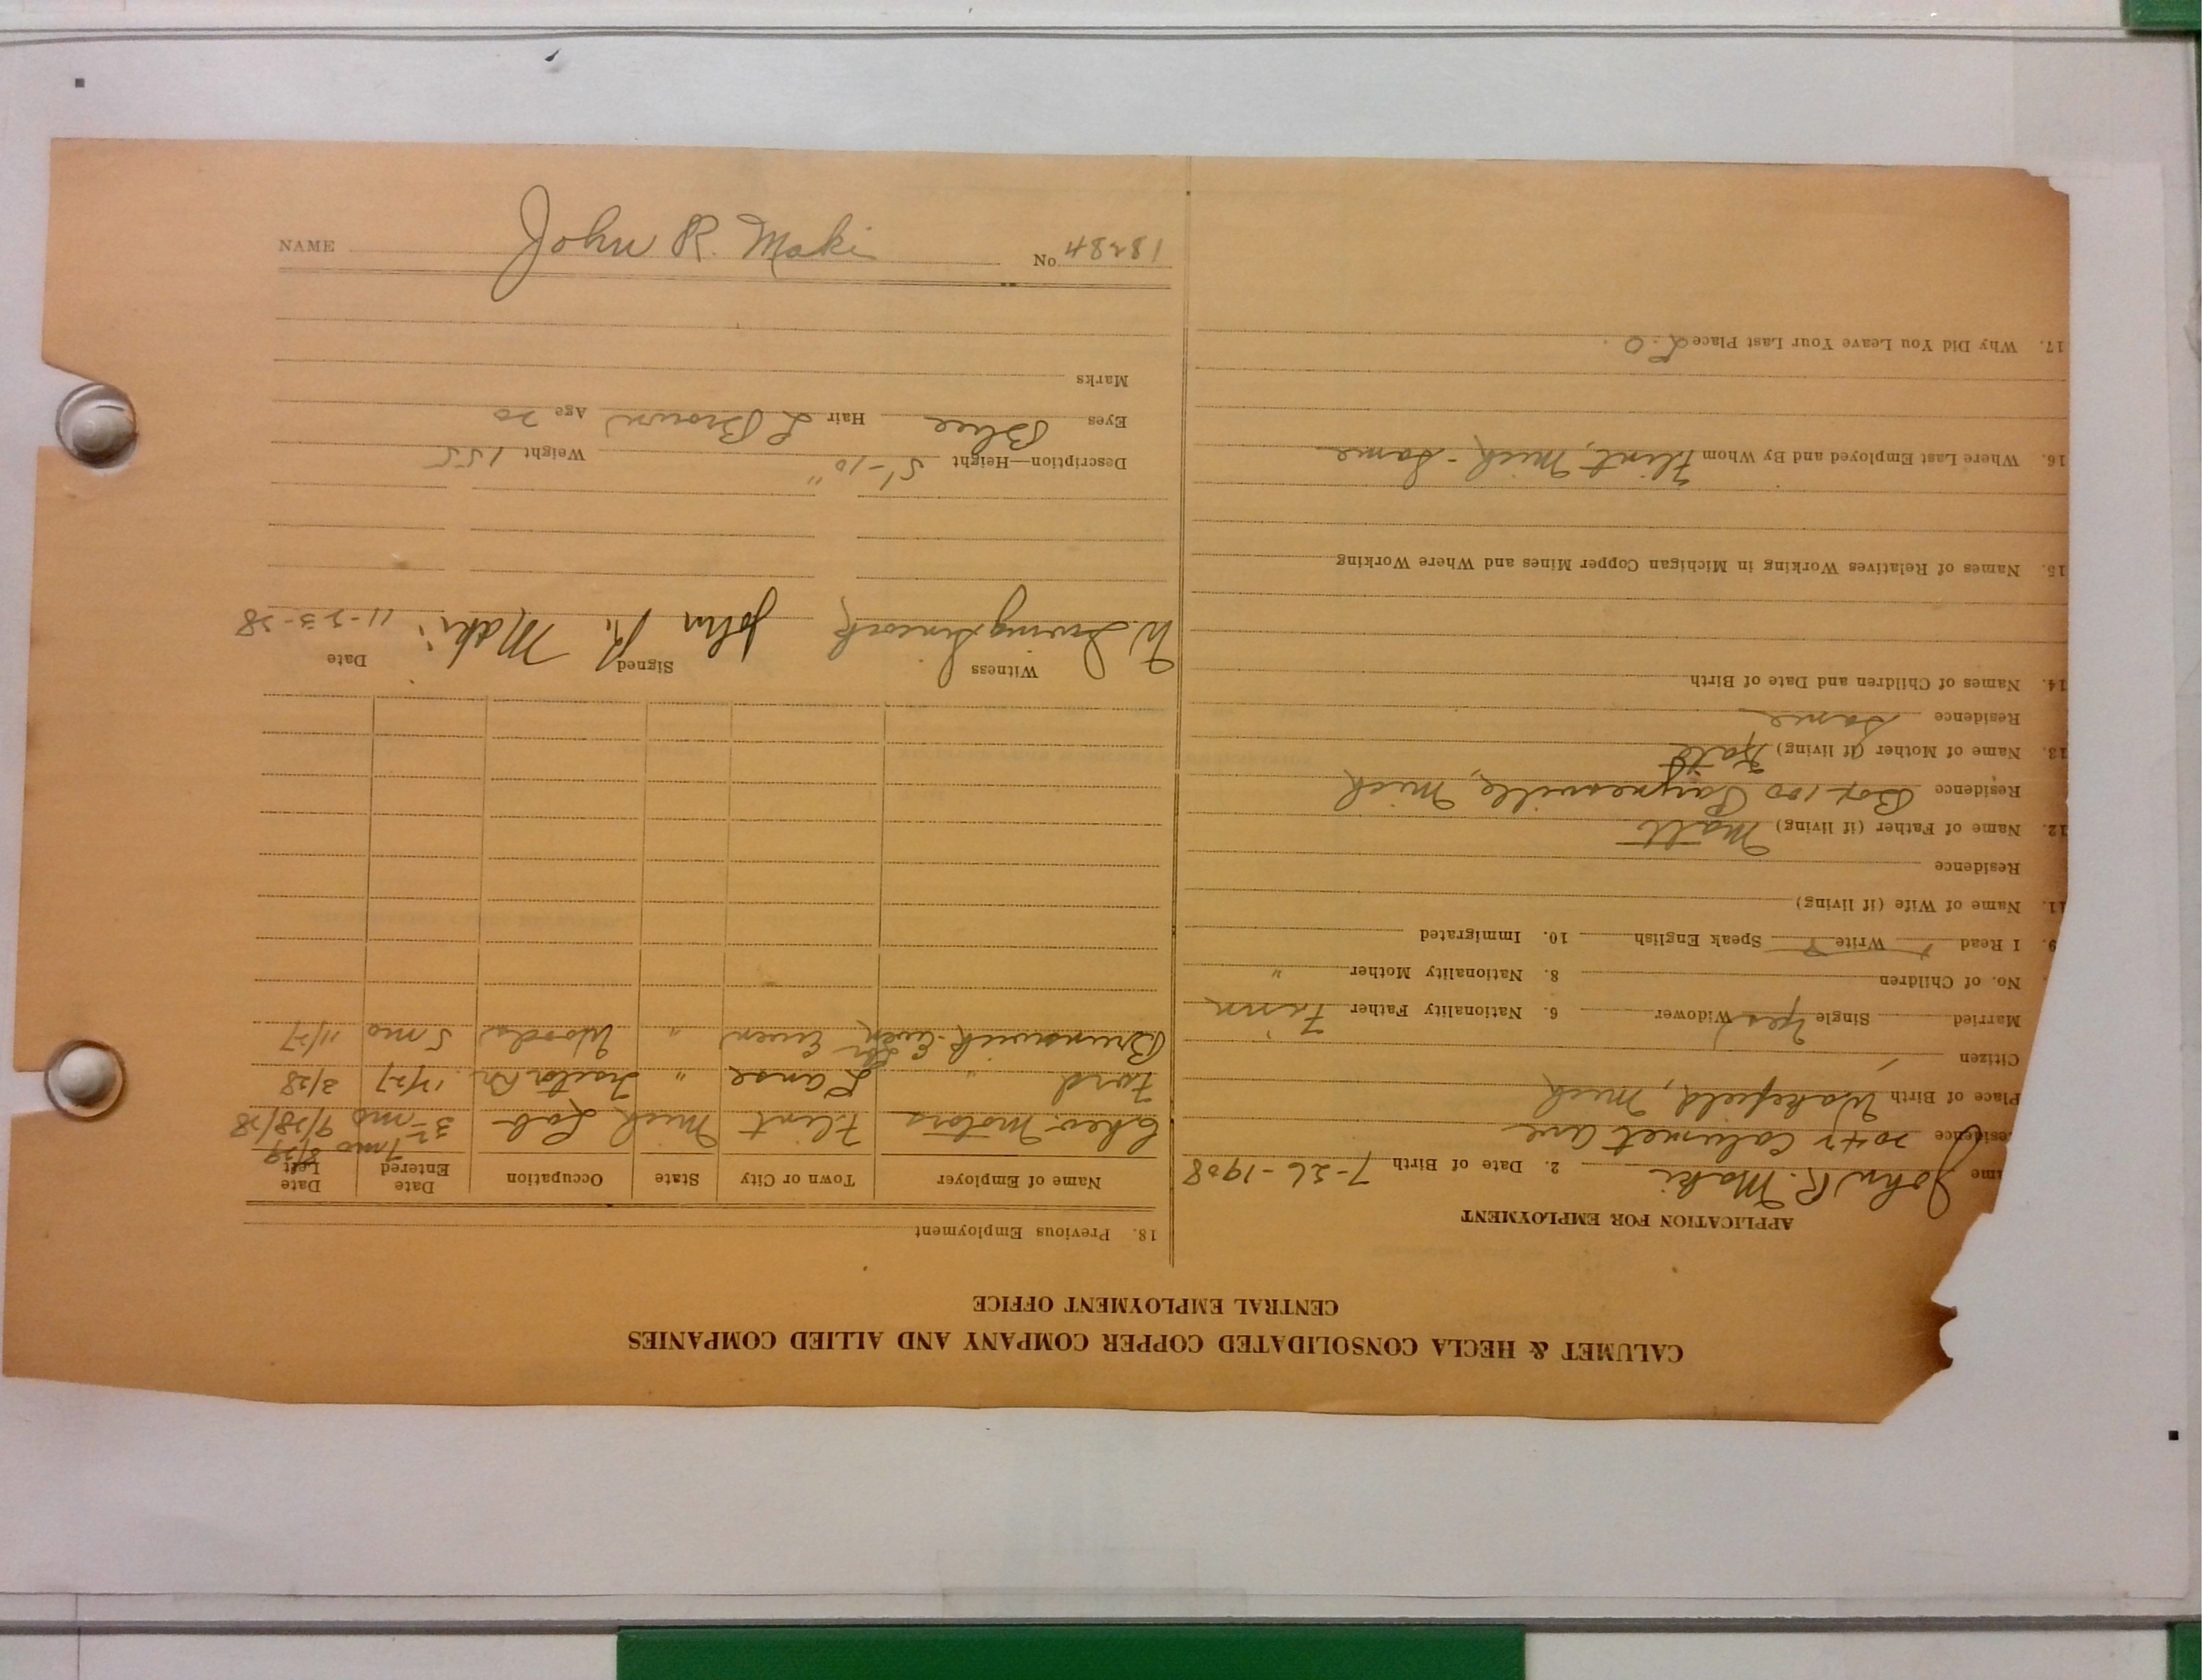 CALUMET & HECLA CONSOLIDATED COPPER COMPANY AND ALLIED COMPANIES
CENTRAL EMPLOYMENT OFFICE
APPLICATION FOR EMPLOYMENT
me John R. Maki 2. Date of Birth 7-26-1908
esidence 2047 Calumet ave
Place of Birth Wakefield, Mich
Citizen
Married Single Yes Widower 6. Nationality Father Finn
No. of Children 8. Nationality Mother "
9. I Read Write Speak English 10. Immigrated
11. Name of Wife (if living)
Residence
12. Name of Father (if living) Matt
Residence Box 100 Paynesville, Mich
13. Name of Mother (if living)
Residence Same
14. Names of Children and Date of Birth
15. Names of Relatives Working in Michigan Copper Mines and Where Working
16. Where Last Employed and By Whom Flint, Mich - Same
17. Why Did You Leave Your Last Place L.O.
18. Previous Employment
Name of Employer Town or City State Occupation Date Entered Date Left
7 mo 8/29
Chev. Motors Flint Mich Lab 3 mo 9/28/28
Ford L'anse " Tractor Dr. 12/27 3/28
Brunswick Ewen " Woods 5 mo 11/27
Witness Signed Date
W. Irving John R. Maki 11-23-28
Description—Height 5'-10" Weight 155
Eyes Blue Hair L Brown Age 20
Marks
No 18284
NAME John R. Maki